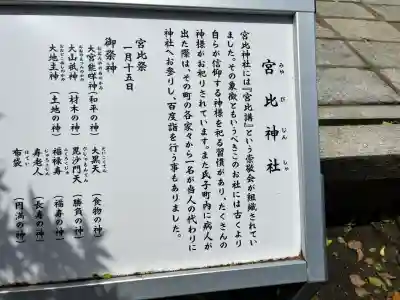 みやびじんしゃ
宮比神社
宮比神社には『宮比講』という崇敬会が組織されてい
ました。その象徴ともいうべきこのお社には古くより
自らが信仰する神様を祀る習慣があり、たくさんの
神様がお祀りされています。また氏子町内に病人が
出た際は、その町の各家々から一名が当人の代わりに
神社へお参りし、百度詣を行う事もありました。
宮比祭
一月十五日
御祭神
大宮能咩神(和平の神)
大山祇神(材木の神)
大地主神(土地の神)
大黒天(食物の神)
毘沙門天(勝負の神)
福禄寿(福寿の神)
寿老人(長寿の神)
布袋(円満の神)